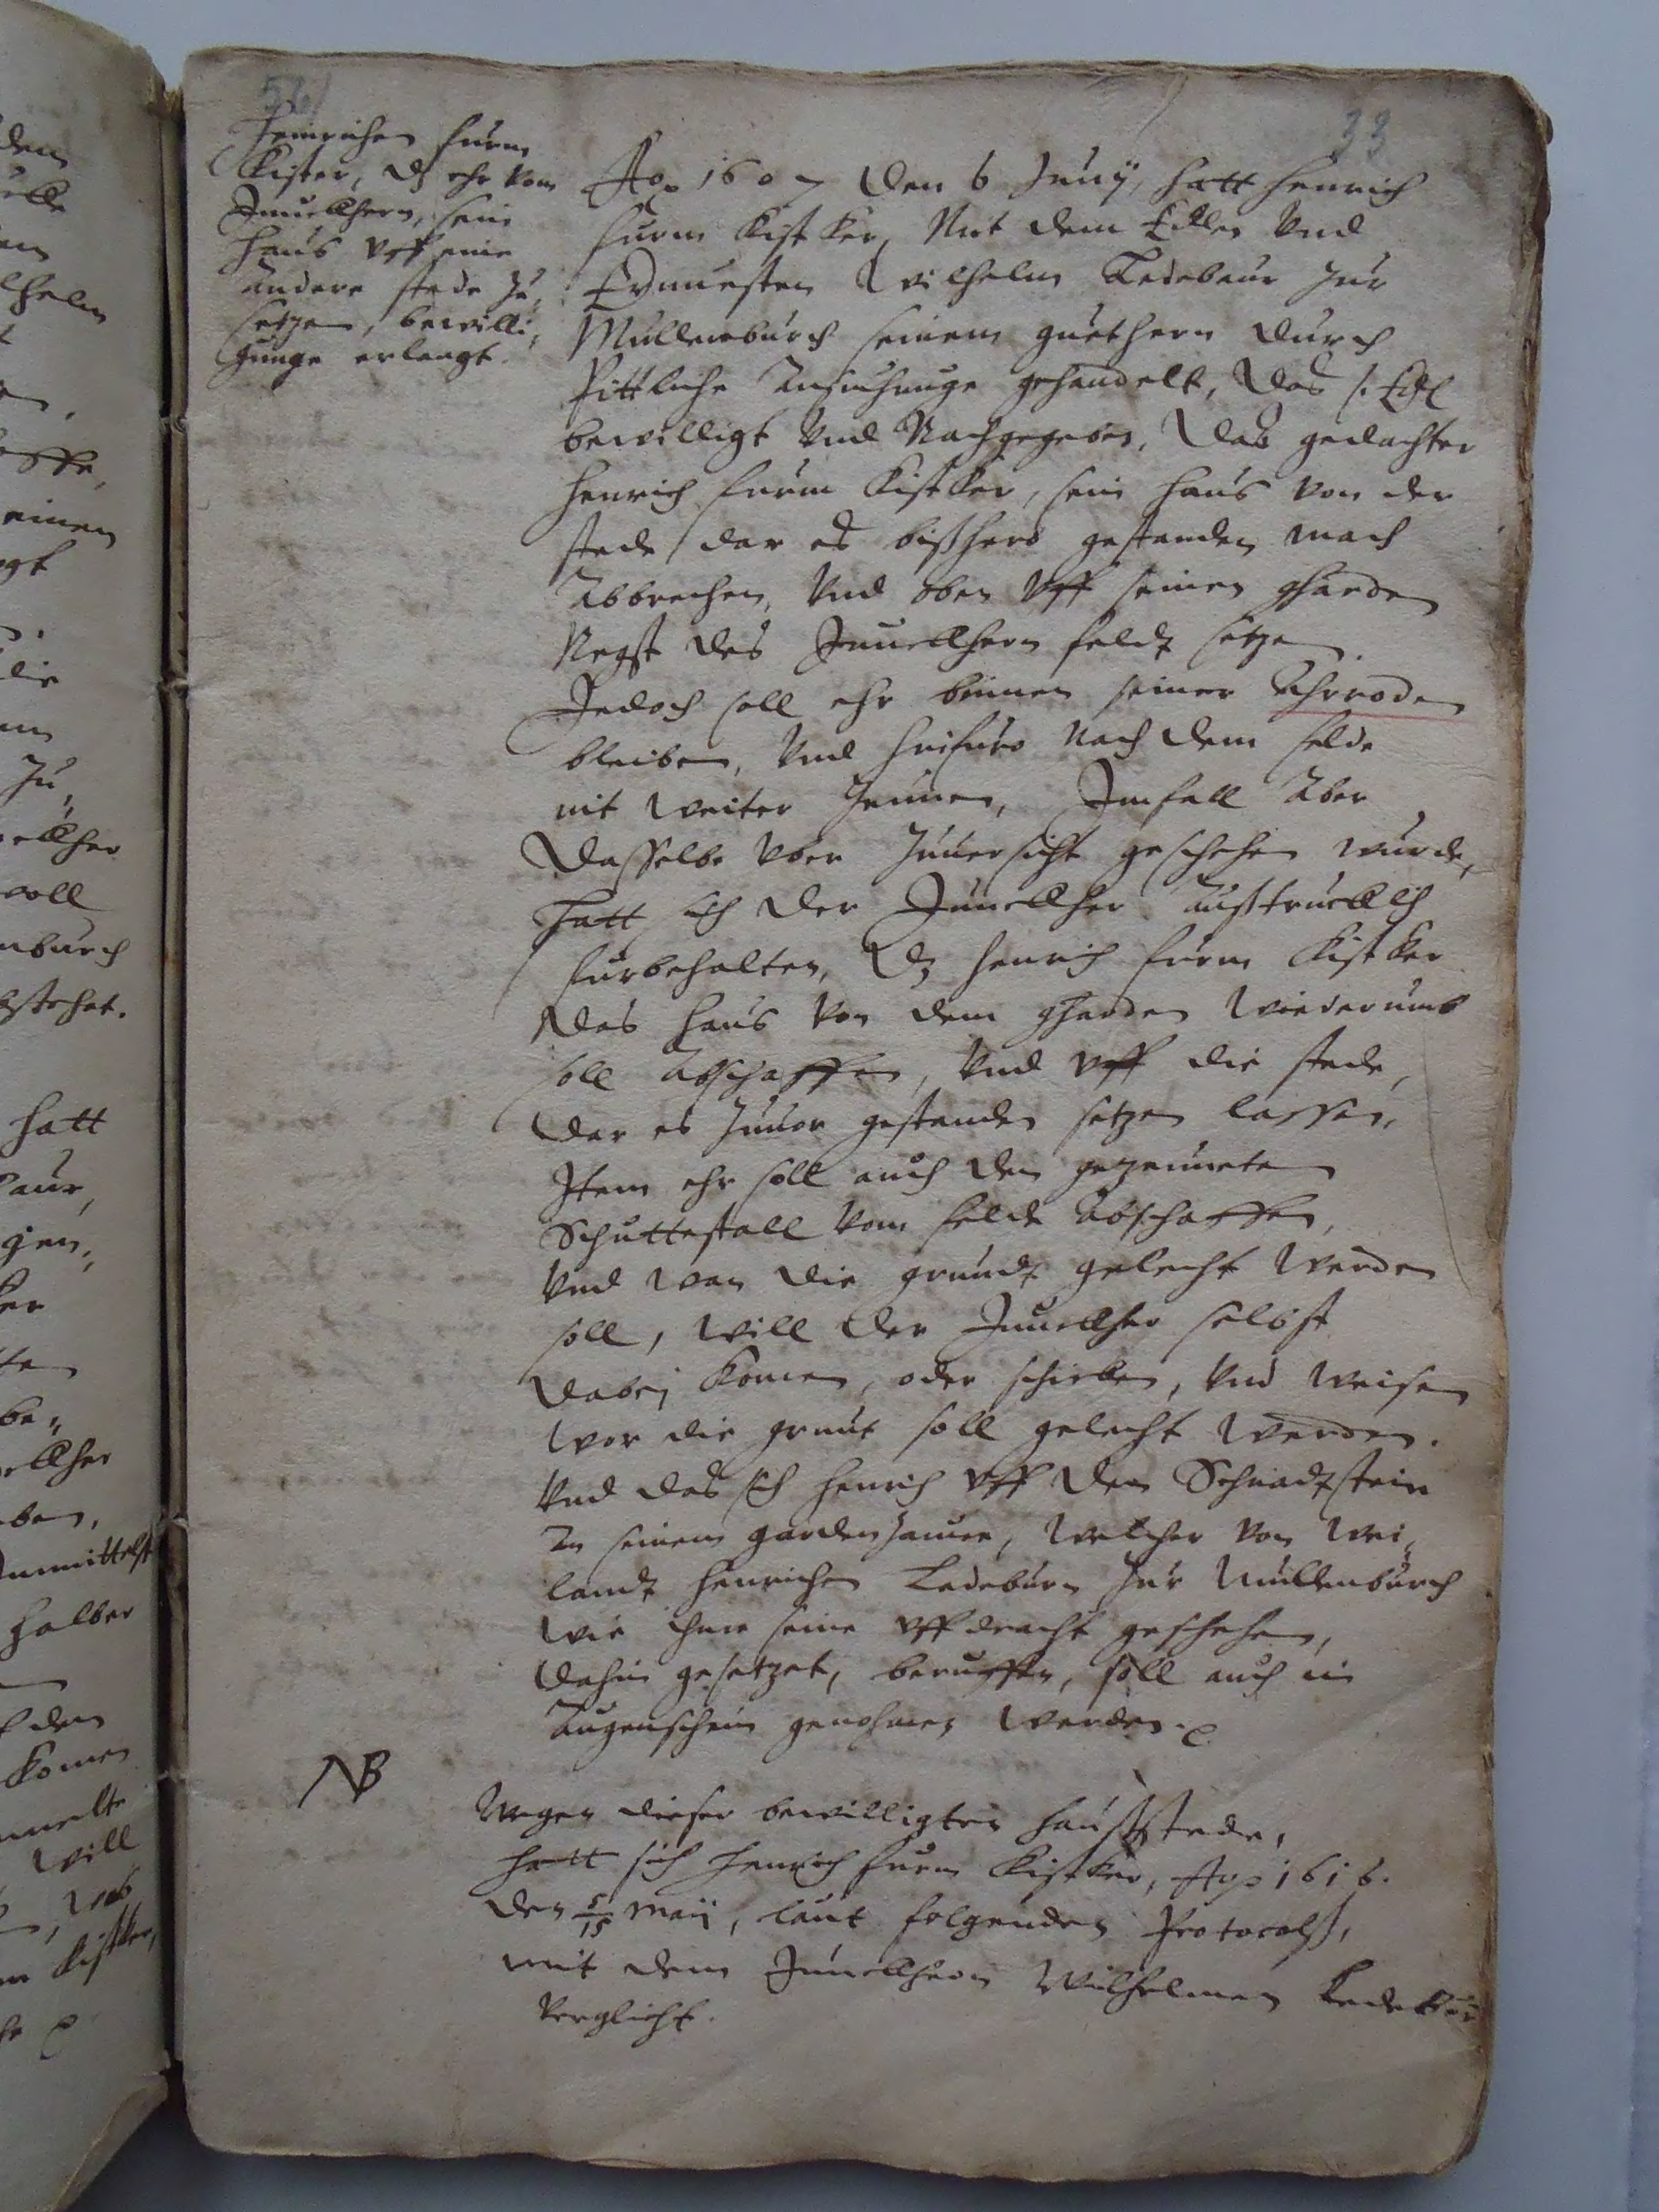 56
33
Heinrichen furm
Kister, dz ehr vom
Junckhern, sein
Haus vff eine
andere stede zu,
setzen, bewilli,
gunge erlangt.
Ao 1607 den 6 Junÿ, hatt Henrich
furm Kistker, Mit dem Edlen vnd
Ernuesten Wilhelm Ledebaur zur
Mullenburch seinem guethern durch
Pittliche ansuchunge gehandelt, Das s. Edl
bewilligt vnd Nachgegeben, Das gedachter
Henrich furm Kistker, sein Haus von der
stede / dar es bißhero gestanden mach
Abbrechen, vnd oben vff seinen gharden
Negst des Junckhern feldt setzen
Jedoch soll ehr binnen seiner Ahrroden
bleiben, vnd hinfuro nach dem felde
nit weiter Zeunen, Imfall aber
Dasselbe vber Zuuersicht geschehen wurde,
Hatt sich der Junckher außtrucklich
furbehalten, Dz Henrich furm Kistker
Das Haus von dem gharden wiederumb
soll Abschaffen, vnd vff die stede,
Dar es Zuuor gestanden setzen lassen,
Item ehr soll auch den gezeuneten
Schuttestall vom felde abschaffen,
vnd wan die grundt gelecht werden
soll, will der Junckher selbst
Dabej komen, oder schicken, vnd weisen
wor die grunt soll gelecht werden.
vnd das sich Henrich vff den Schnadtstein
In seinem gardenzaune, welcher von wei,
landt Henrichen Ledeburn Zur Mullenburch
wie ihme seine vffdracht geschehen,
Dahin gesetzet, beruffen, soll auch in
Augenschein genohmen werden.
NB
Wegen dieser bewilligten Haußstede,
hatt sich Henrich furm Kistker, Ao 1616.
den 5/15 Maij, laut folgenden Protocolß,
mit dem Junckhern Wilhelmen Ledebur
verglicht.